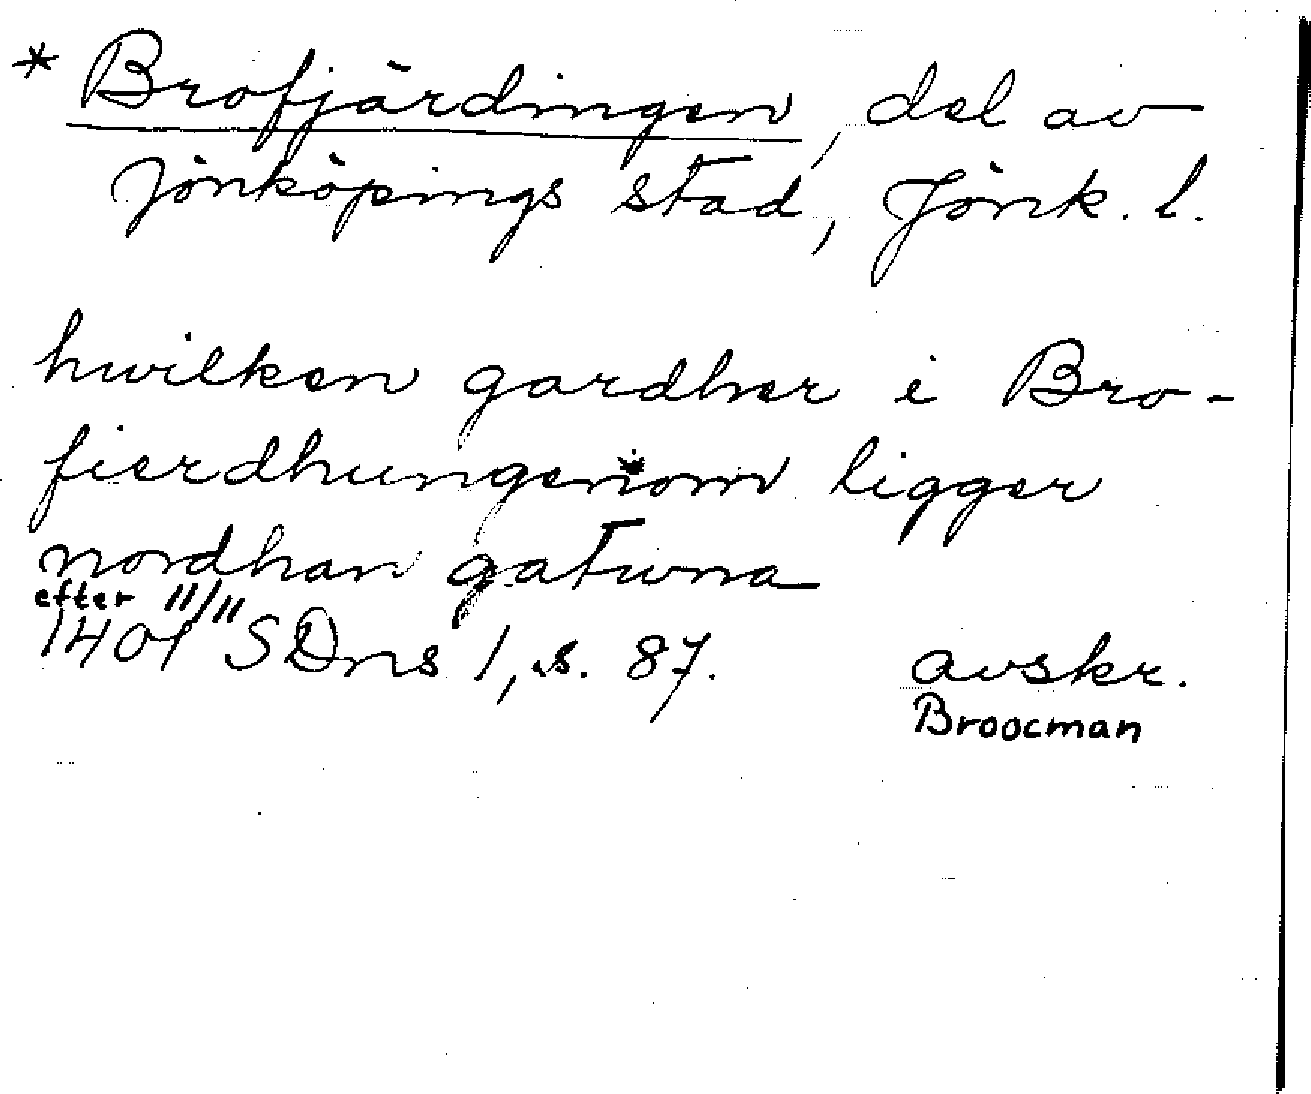 * Brofjärdingen, del av
Jönköpings stad, Jönk. l.
hwilken gardher i Bro-
fierdhungenom ligger
nordhan gatuna
efter 11/11
1401 SDns 1, s. 87. avskr.
Broocman